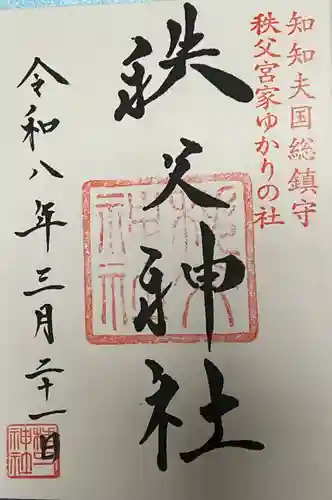 知知夫国総鎮守
秩父宮家ゆかりの社
秩父神社
令和八年三月二十一日
秩父神社